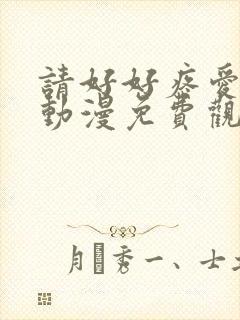 請好好疼愛
動漫免費觀
秀一、士